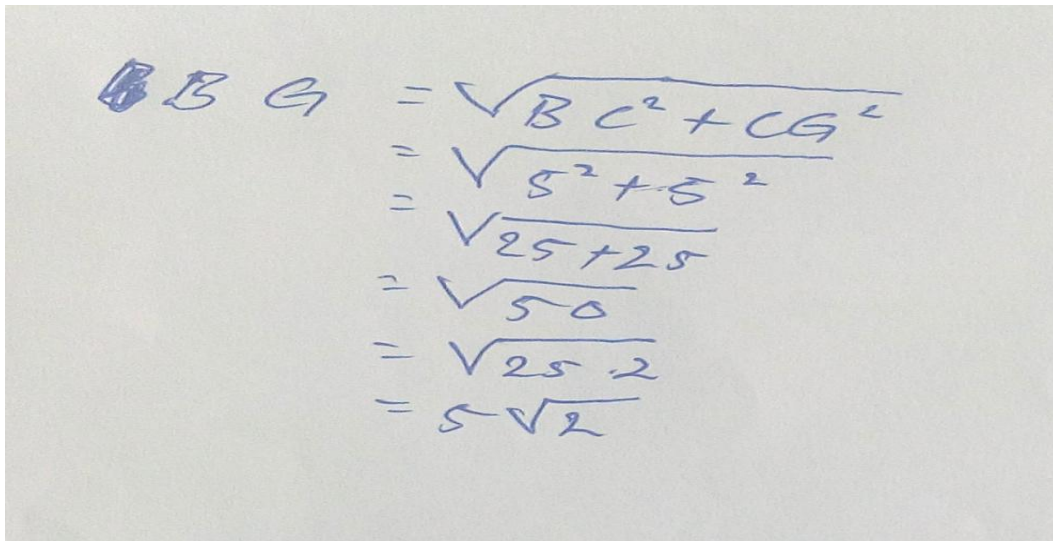 B G = √BC² + CG²
= √5² + 5²
= √25 + 25
= √50
= √25 . 2
= 5√2